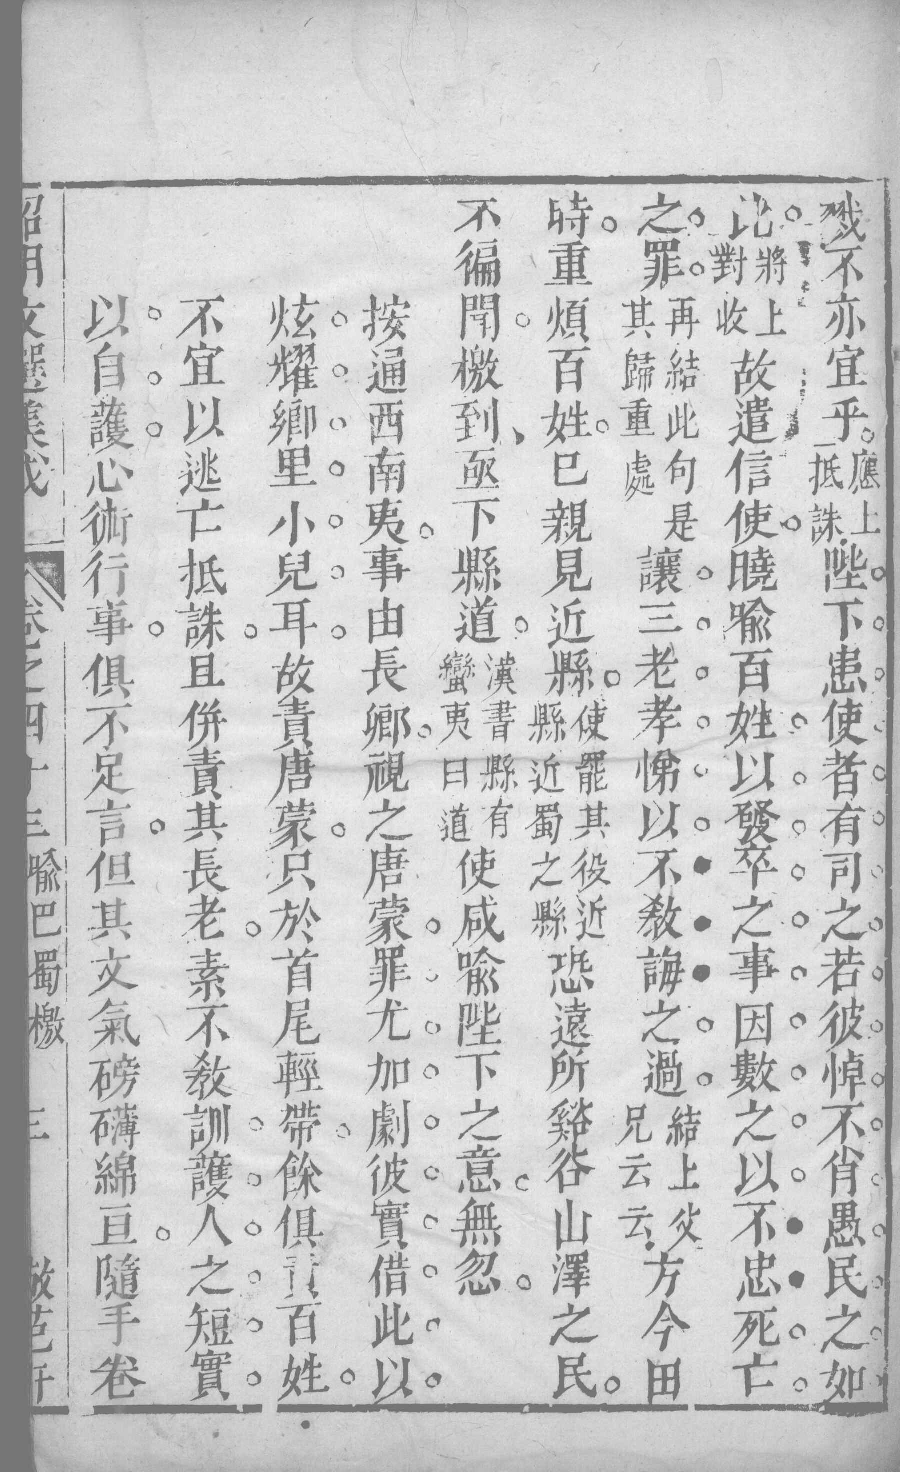 戮不亦宜乎應上抵誅陛下患使者有司之若彼悼不肖愚民之如
此將上對收故遣信使曉喻百姓以發卒之事因數之以不忠死亡
之罪再結此句是其歸重處讓三老孝悌以不教誨之過結上父兄云云方今田
時重煩百姓已親見近縣使罷其役近縣近蜀之縣恐遠所谿谷山澤之民
不徧聞檄到亟下縣道漢書縣有蠻夷曰道使咸喻陛下之意無忽
按通西南夷事由長卿視之唐蒙罪尤加劇彼實借此以
炫耀鄉里小兒耳故責唐蒙只於首尾輕帶餘俱責百姓
不宜以逃亡抵誅且併責其長老素不教訓護人之短實
以自護心術行事俱不足言但其文氣磅礡綿亘隨手卷
昭明文選集成 卷之四十三 喻巴蜀檄 三